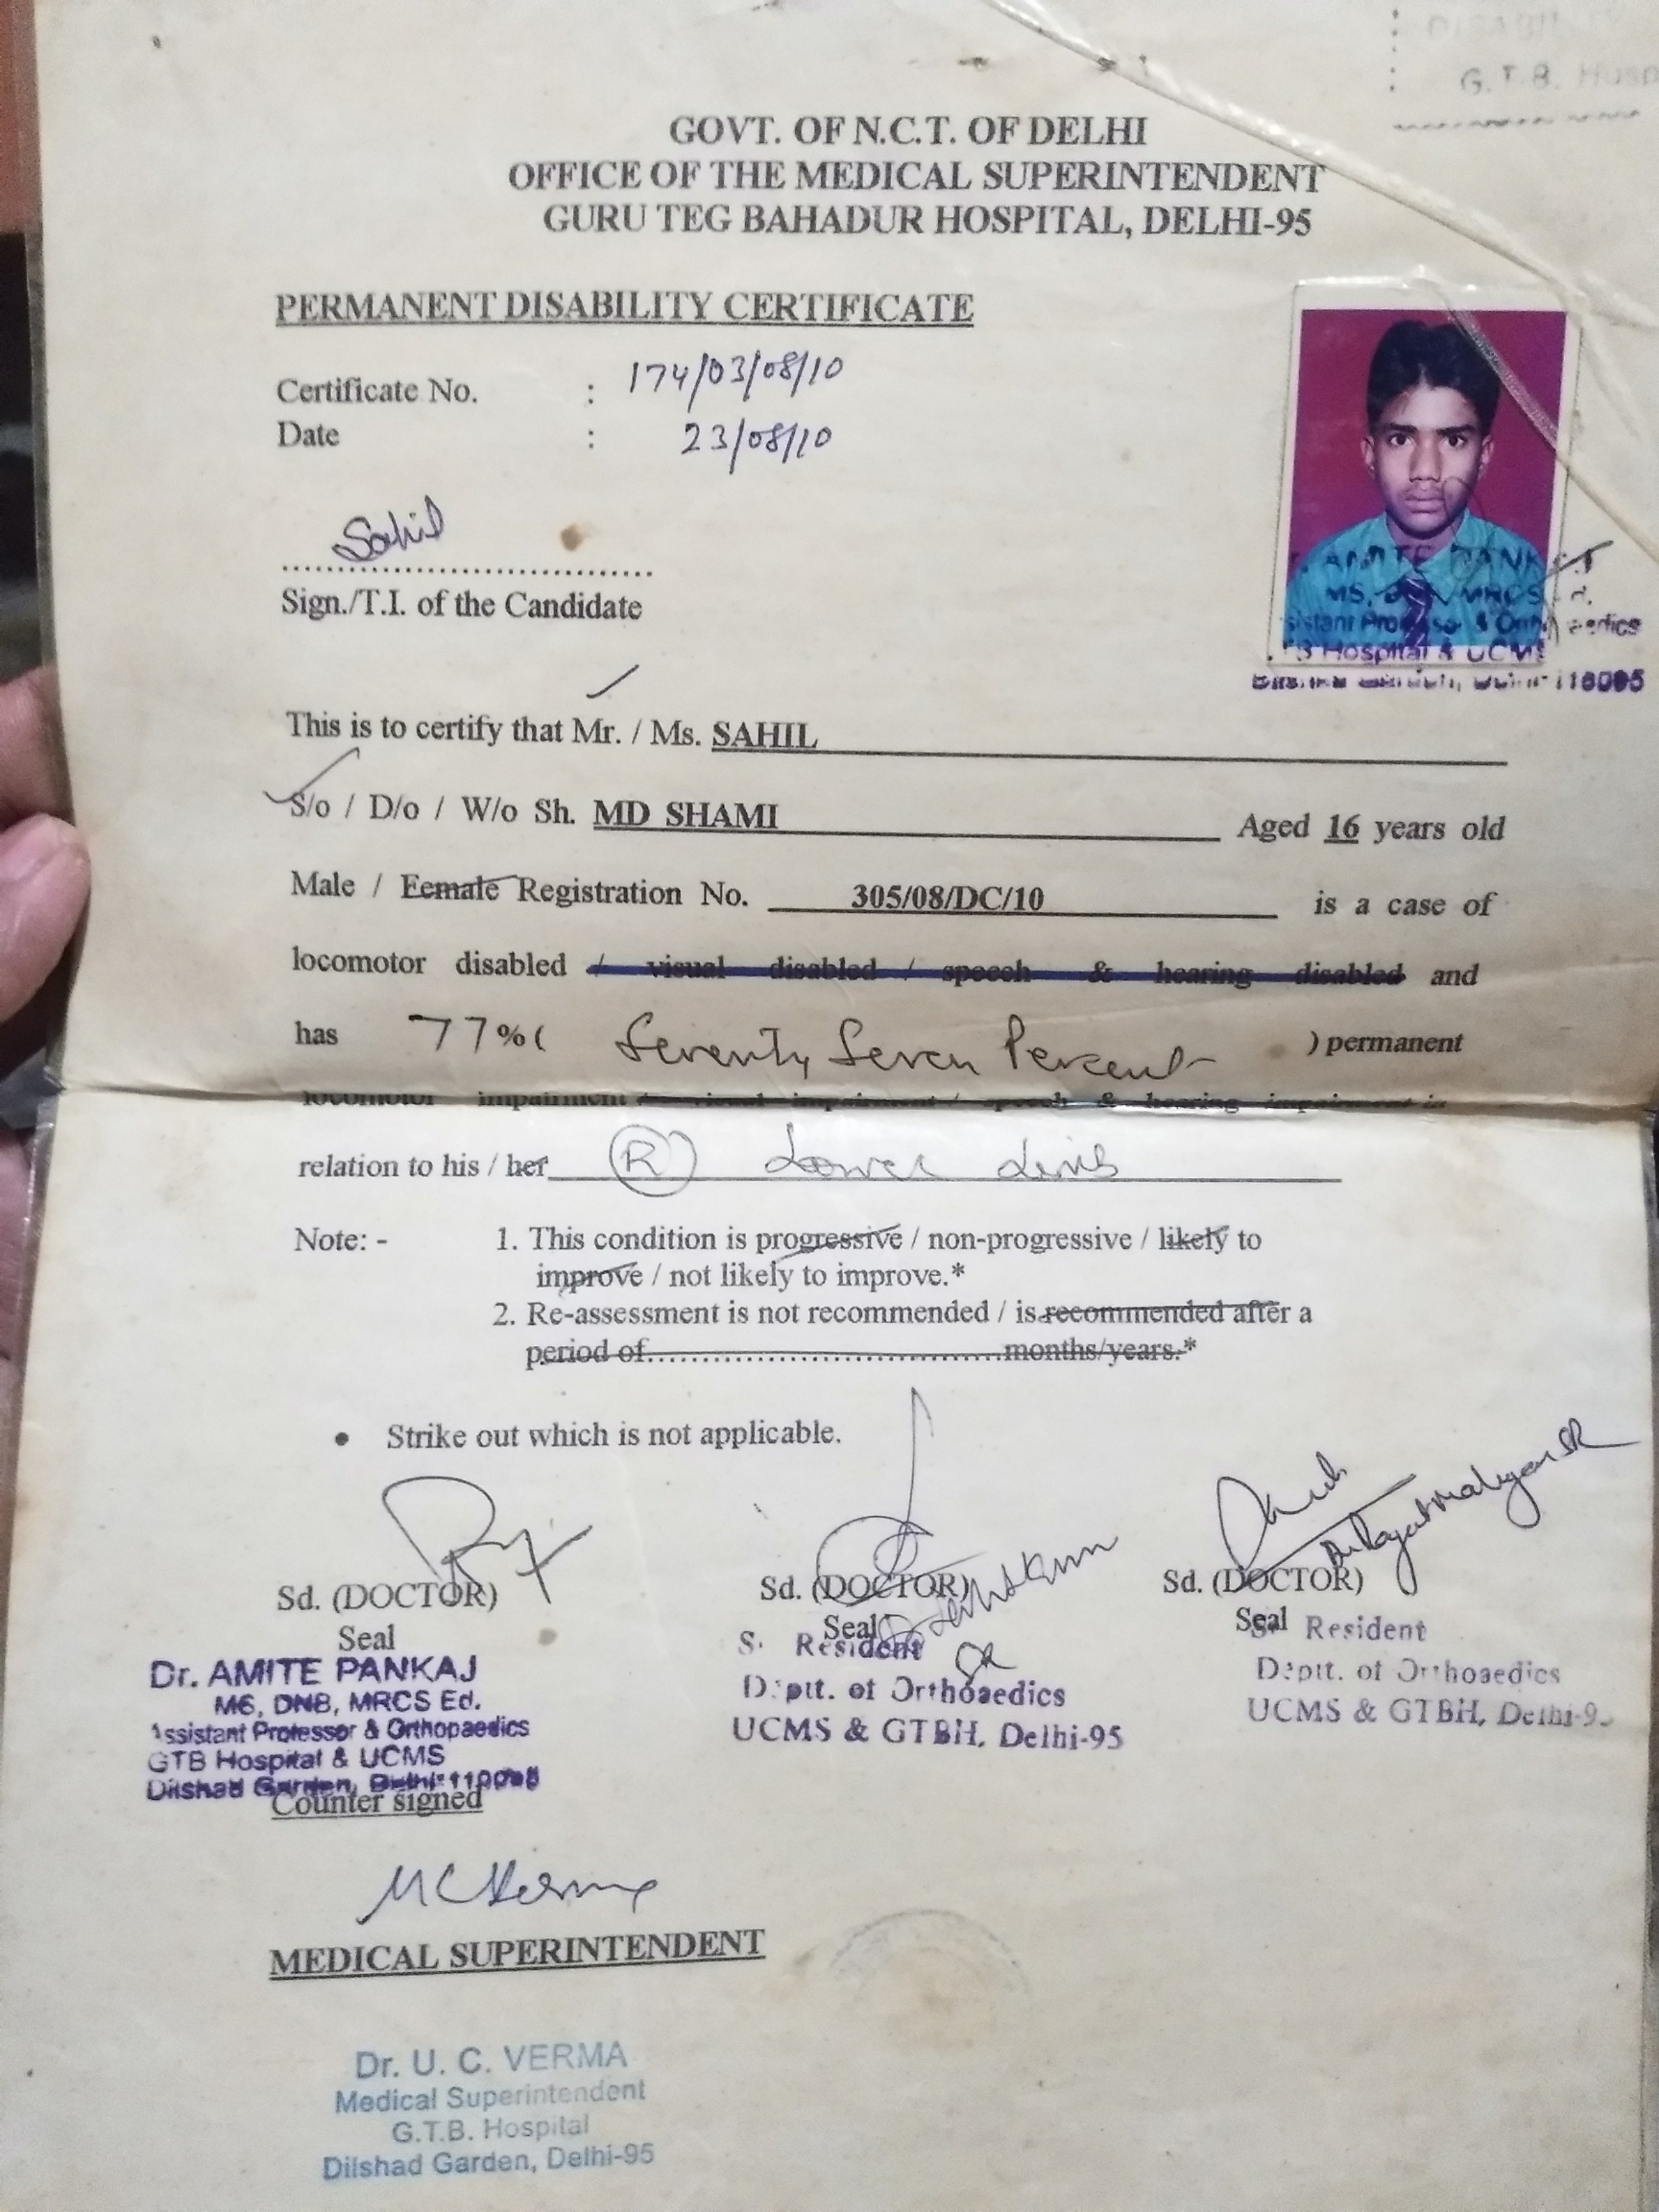 DISABILITY
G.T.B. Hosp
GOVT. OF N.C.T. OF DELHI
OFFICE OF THE MEDICAL SUPERINTENDENT
GURU TEG BAHADUR HOSPITAL, DELHI-95
PERMANENT DISABILITY CERTIFICATE
Certificate No. : 174/03/08/10
Date : 23/08/10
Sahil
Sign./T.I. of the Candidate
AMITE PANKAJ
MS, MRCS
Hospital & UCMS
This is to certify that Mr. / Ms. SAHIL
S/o / D/o / W/o Sh. MD SHAMI Aged 16 years old
Male / Female Registration No. 305/08/DC/10 is a case of
locomotor disabled / visual disabled / speech & hearing disabled and
has 77% ( Seventy Seven Percent ) permanent
locomotor impairment / visual impairment / speech & hearing impairment in
relation to his / her (R) Lower Limb
Note: - 1. This condition is progressive / non-progressive / likely to
improve / not likely to improve.*
2. Re-assessment is not recommended / is recommended after a
period of..........................................months/years.*
• Strike out which is not applicable.
Sd. (DOCTOR) Sd. (DOCTOR) Sd. (DOCTOR)
Seal Seal Seal
Dr. AMITE PANKAJ
MS, DNB, MRCS Ed.
Assistant Professor & Orthopaedics
GTB Hospital & UCMS
Dilshad Garden, Delhi-110095
S. Resident
SR
Deptt. of Orthoaedics
UCMS & GTBH, Delhi-95
Sr Resident
Deptt. of Orthoaedics
UCMS & GTBH, Delhi-9
Counter signed
MEDICAL SUPERINTENDENT
Dr. U. C. VERMA
Medical Superintendent
G.T.B. Hospital
Dilshad Garden, Delhi-95